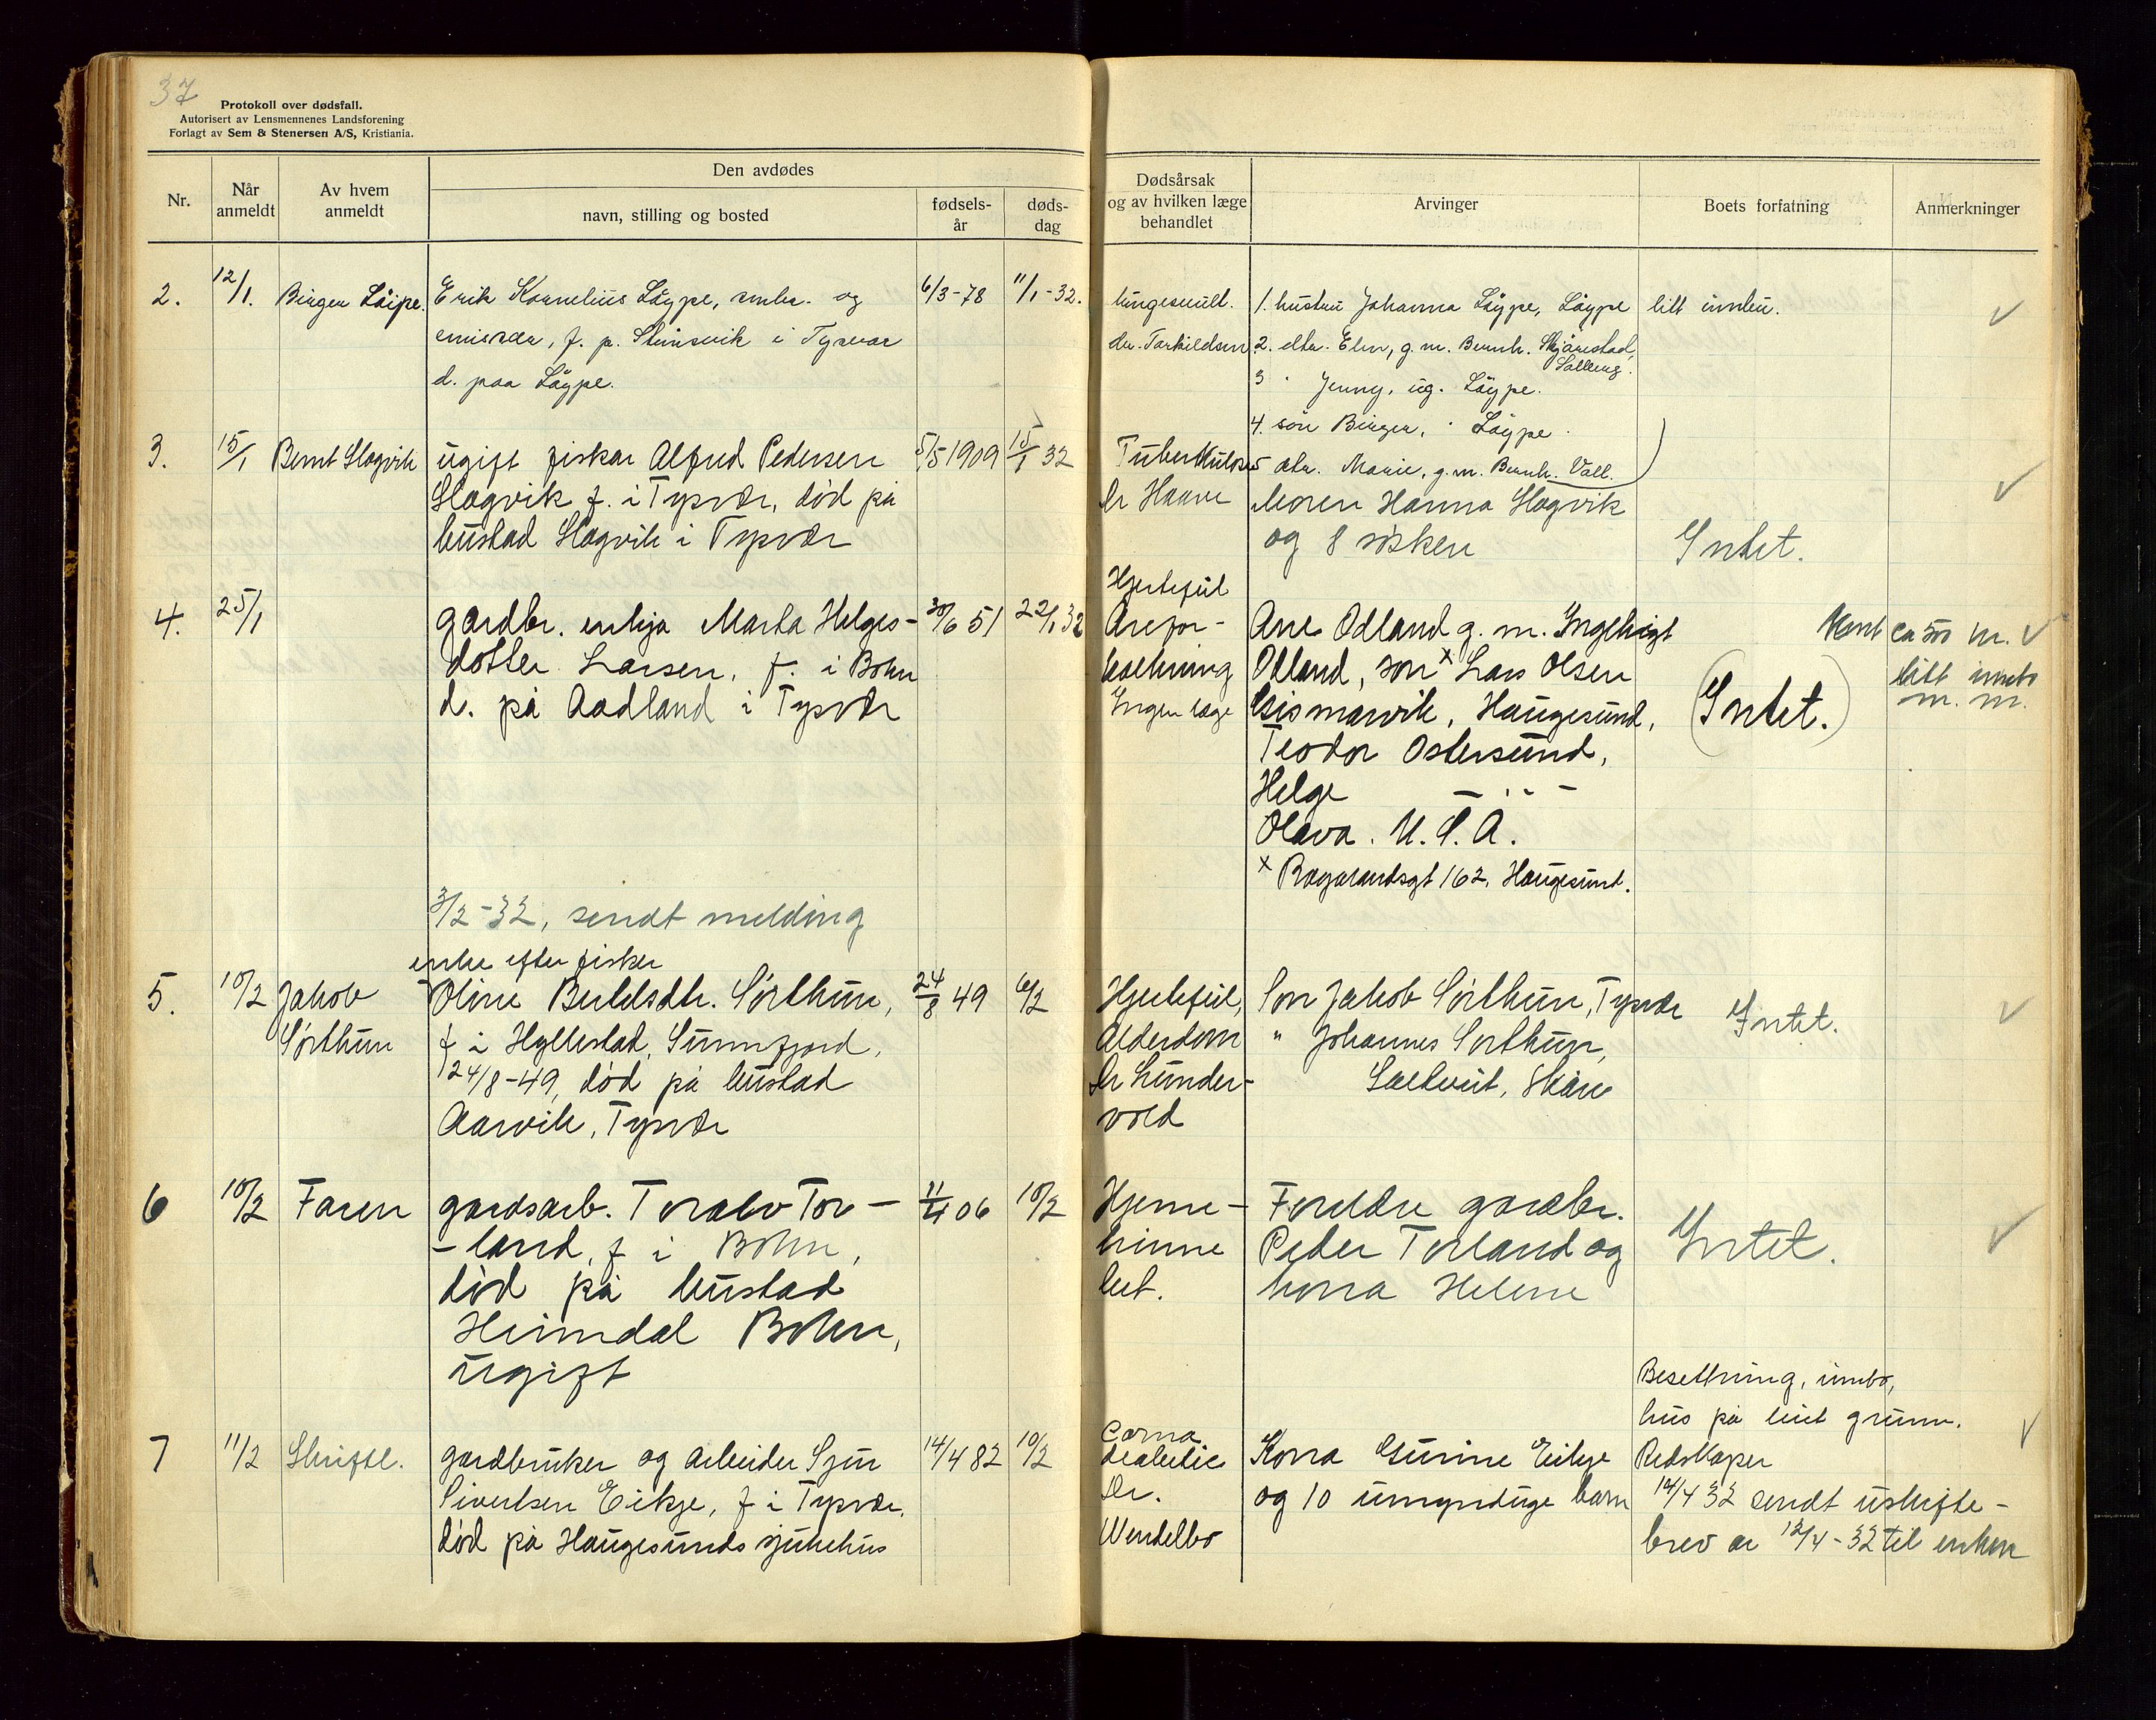 37
Protokoll over dødsfall.
Autorisert av Lensmennenes Landsforening
Forlagt av Sem & Stenersen A/S, Kristiania.
Nr.
Når anmeldt
Av hvem anmeldt
Den avdødes
navn, stilling og bosted
fødsels-år
døds-dag
Dødsårsak og av hvilken læge behandlet
Arvinger
Boets forfatning
Anmerkninger
2. 12/1. Birger Løipe. Erik Kornelius Løype, smbr. og 6/3-78 11/1-32.
emissær, f. p. Stunsvik i Tysvær
d. paa Løype.
dr. Torkildsen
1. hustru Johanna Løype, Løype
2. dtr. Elen, g.m. Bernh. Skjærestad,
3 " Jenny, ug. Løype.
4. søn Birger, " Løype.
5 dtr. Marie, g.m. Bernh. Vall.
litt innbu.
3. 15/1 Bernt Slogvik ugift fiskar Alfred Pedersen 5/5 1909 15/1 32
Slogvik f. i Tysvær, død på
bustad Slogvik i Tysvær
Tuberkulose
Dr Haave
Moren Hanna Slogvik
og 8 sösken
Intet.
4. 25/1 gardbr. enkja Marta Helges- 30/6 51 22/1 32
dotter Larsen, f. i Bokn
d. på Aadland i Tysvær
Hjertefeil
Årefor-
kalkning
Ingen læge
Ane Odland g.m. Ingebrigt
Odland, son x Lars Olsen
Gismarvik, Haugesund,
Teodor Ostersund,
Helge — " —
Olava. U.S.A.
x Rogalandsgt 162, Haugesund.
(Intet.)
Kont ca 500 kr.
litt innbo
m. m.
3/2-32, sendt melding
enke efter fisker
5. 10/2 Jakob Oline Bertelsdtr. Sörthun, 24/8 49 6/2
Sörthun f i Hyllestad, Sunnfjord,
24/8-49, död på bustad
Aarvik, Tysvær
Hjertefeil,
Alderdom
Dr Lunder-
vold
Son Jakob Sörthun, Tysvær
" Johannes Sörthun,
Saltveit, Skåre
Intet.
6 10/2 Faren gardsarb. Toralv Tor- 11/4 06 10/2
-land, f i Bokn,
död på bustad
Heimdal Bokn,
ugift
Hjerne-
hinne
bet.
Foreldre gardbr.
Peder Torland og
kona Helene
Intet.
7 11/2 Skriftl. gardbruker og arbeider Sjur 14/4 82 10/2
Sivertsen Eikje, f i Tysvær,
död på Haugesunds sjukehus
Coma
diabetic
Dr.
Wendelbo
Kona Gurine Eikje
og 10 umyndige barn
Besetning, innbo,
hus på leiet grunn.
Redskaper
12/4 32 sendt uskifte-
brev av 12/4-32 til enken